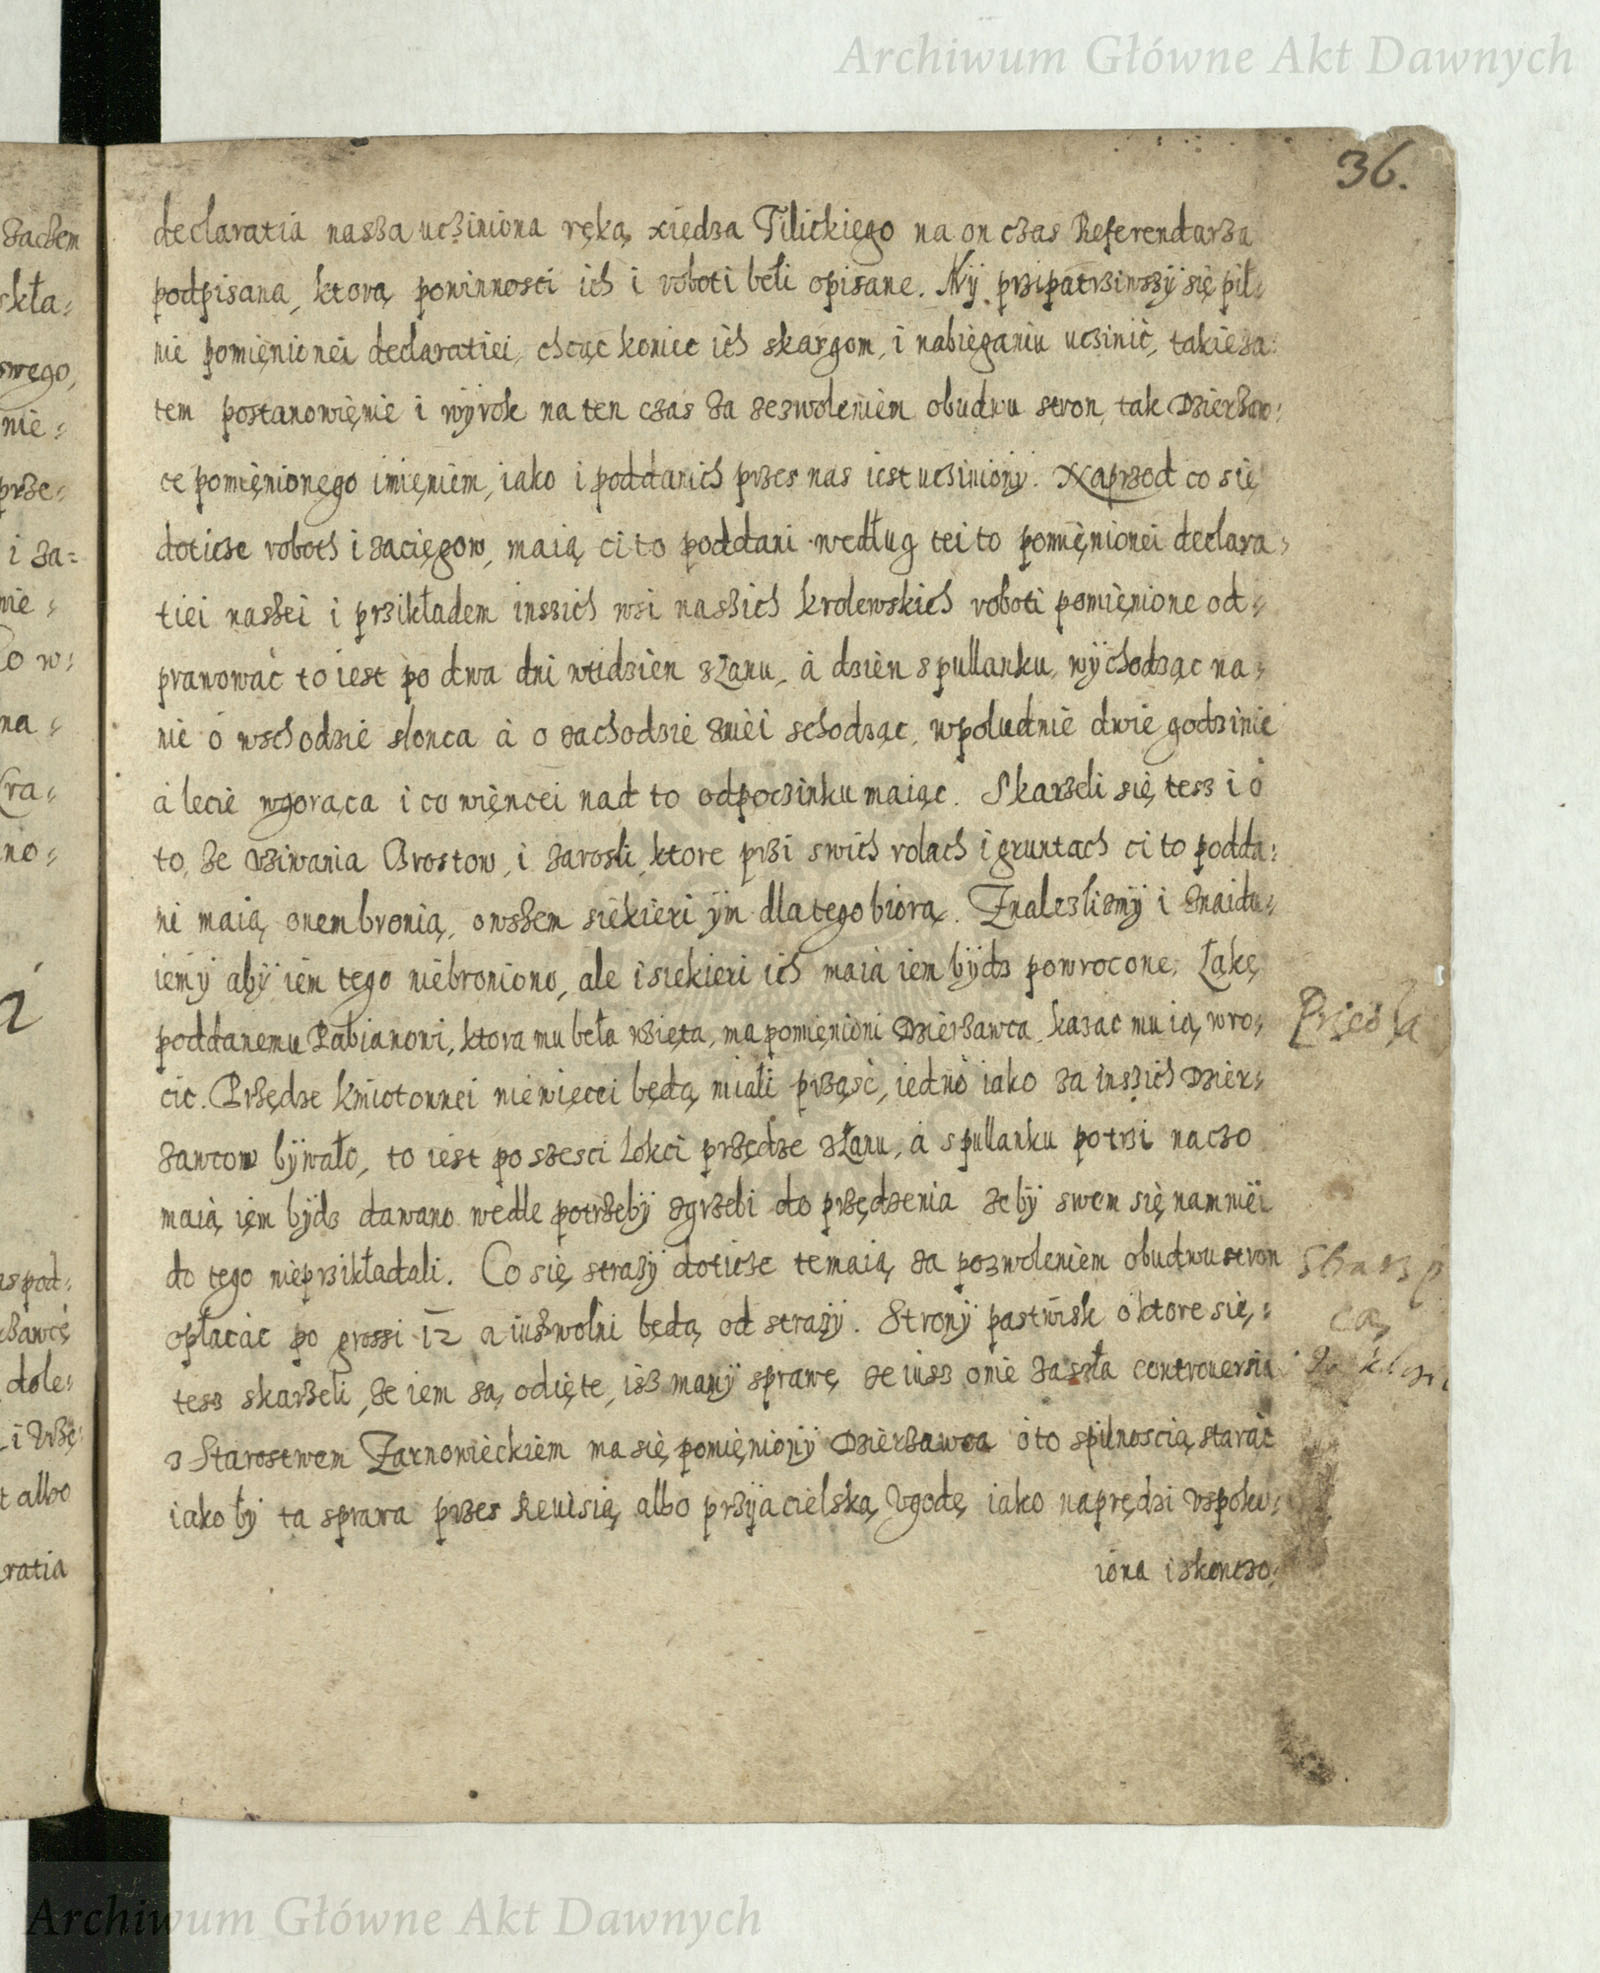 Archiwum Główne Akt Dawnych
36.
declaratia nasza ucziniona ręką xiędza Tilickiego na on czas Referendarza
podpisana, ktorą powinnosci ich i roboti beli opisane. My przipatrziwszÿ się pil:
nie pomięnionei declaratiei, chcąc koniec ich skargom, i nabięganiu uczinić, takie za:
tem postanowięnie i wÿrok na ten czas za zezwoleniem obudwu stron, tak Dzierżaw:
ce pomięnionego imięniem, iako i poddanich przes nas iest ucziniony. Naprzod co się
doticze roboth i zacięgow, maią ci to poddani według tei to pomięnionei declara:
tiei naszei i przikładem inszich wsi naszich krolewskich roboti pomięnione od:
prawować to iest po dwa dni wtidzień złanu, à dzień spullanku, wÿchodząc na:
nie ó wschodzie słonca à o zachodzie zniei schodząc, wpoludnie dwie godzinie
à lecie wgorąca i co więncei nad to odpoczinku maiąc. Skarżeli się tesz i ó
to, że vziwania Brostow, i zarosli, ktore przi swich rolach i gruntach ci to podda:
ni maią onem bronią, owszem siekieri ÿm dlatego biorą. Znalezlizmÿ i znaidu:
iemÿ abÿ iem tego niebroniono, ale i siekieri ich maią iem bÿdz powrocone. Łąkę
poddanemu Pabianowi, ktora mu beła wzięta, ma pomięnioni Dzierżawca, kazać mu ią wro:
cić. Przędze kmiotownei niewięcei będą miali prząść, iedno iako za inszich Dzier:
żawcow bÿwało, to iest po szesci łokci przędze złanu, á spullanku po trzi na czo
maią iem bÿdz dawano wedle potrzebÿ zgrzebi do przędzenia żeby swem się namniei
do tego nieprzikładali. Co się strażÿ doticze te maią za pozwoleniem obudwu stron
opłacać po grossi 12 a iuż wolni będą od strażÿ. Stronÿ pastwisk o ktore się:
tesz skarżeli, że iem są odięte, isz mamÿ sprawę że iusz onie zaszła controuersia
z Starostwem Żarnowieckiem ma się pomięnionÿ Dzierżawca ó to spilnoscią starać
iako bÿ ta sprawa przes Reuisią albo przÿiacielską Vgodę iako naprędzi vspoko:
iona i skonczo:
Archiwum Główne Akt Dawnych